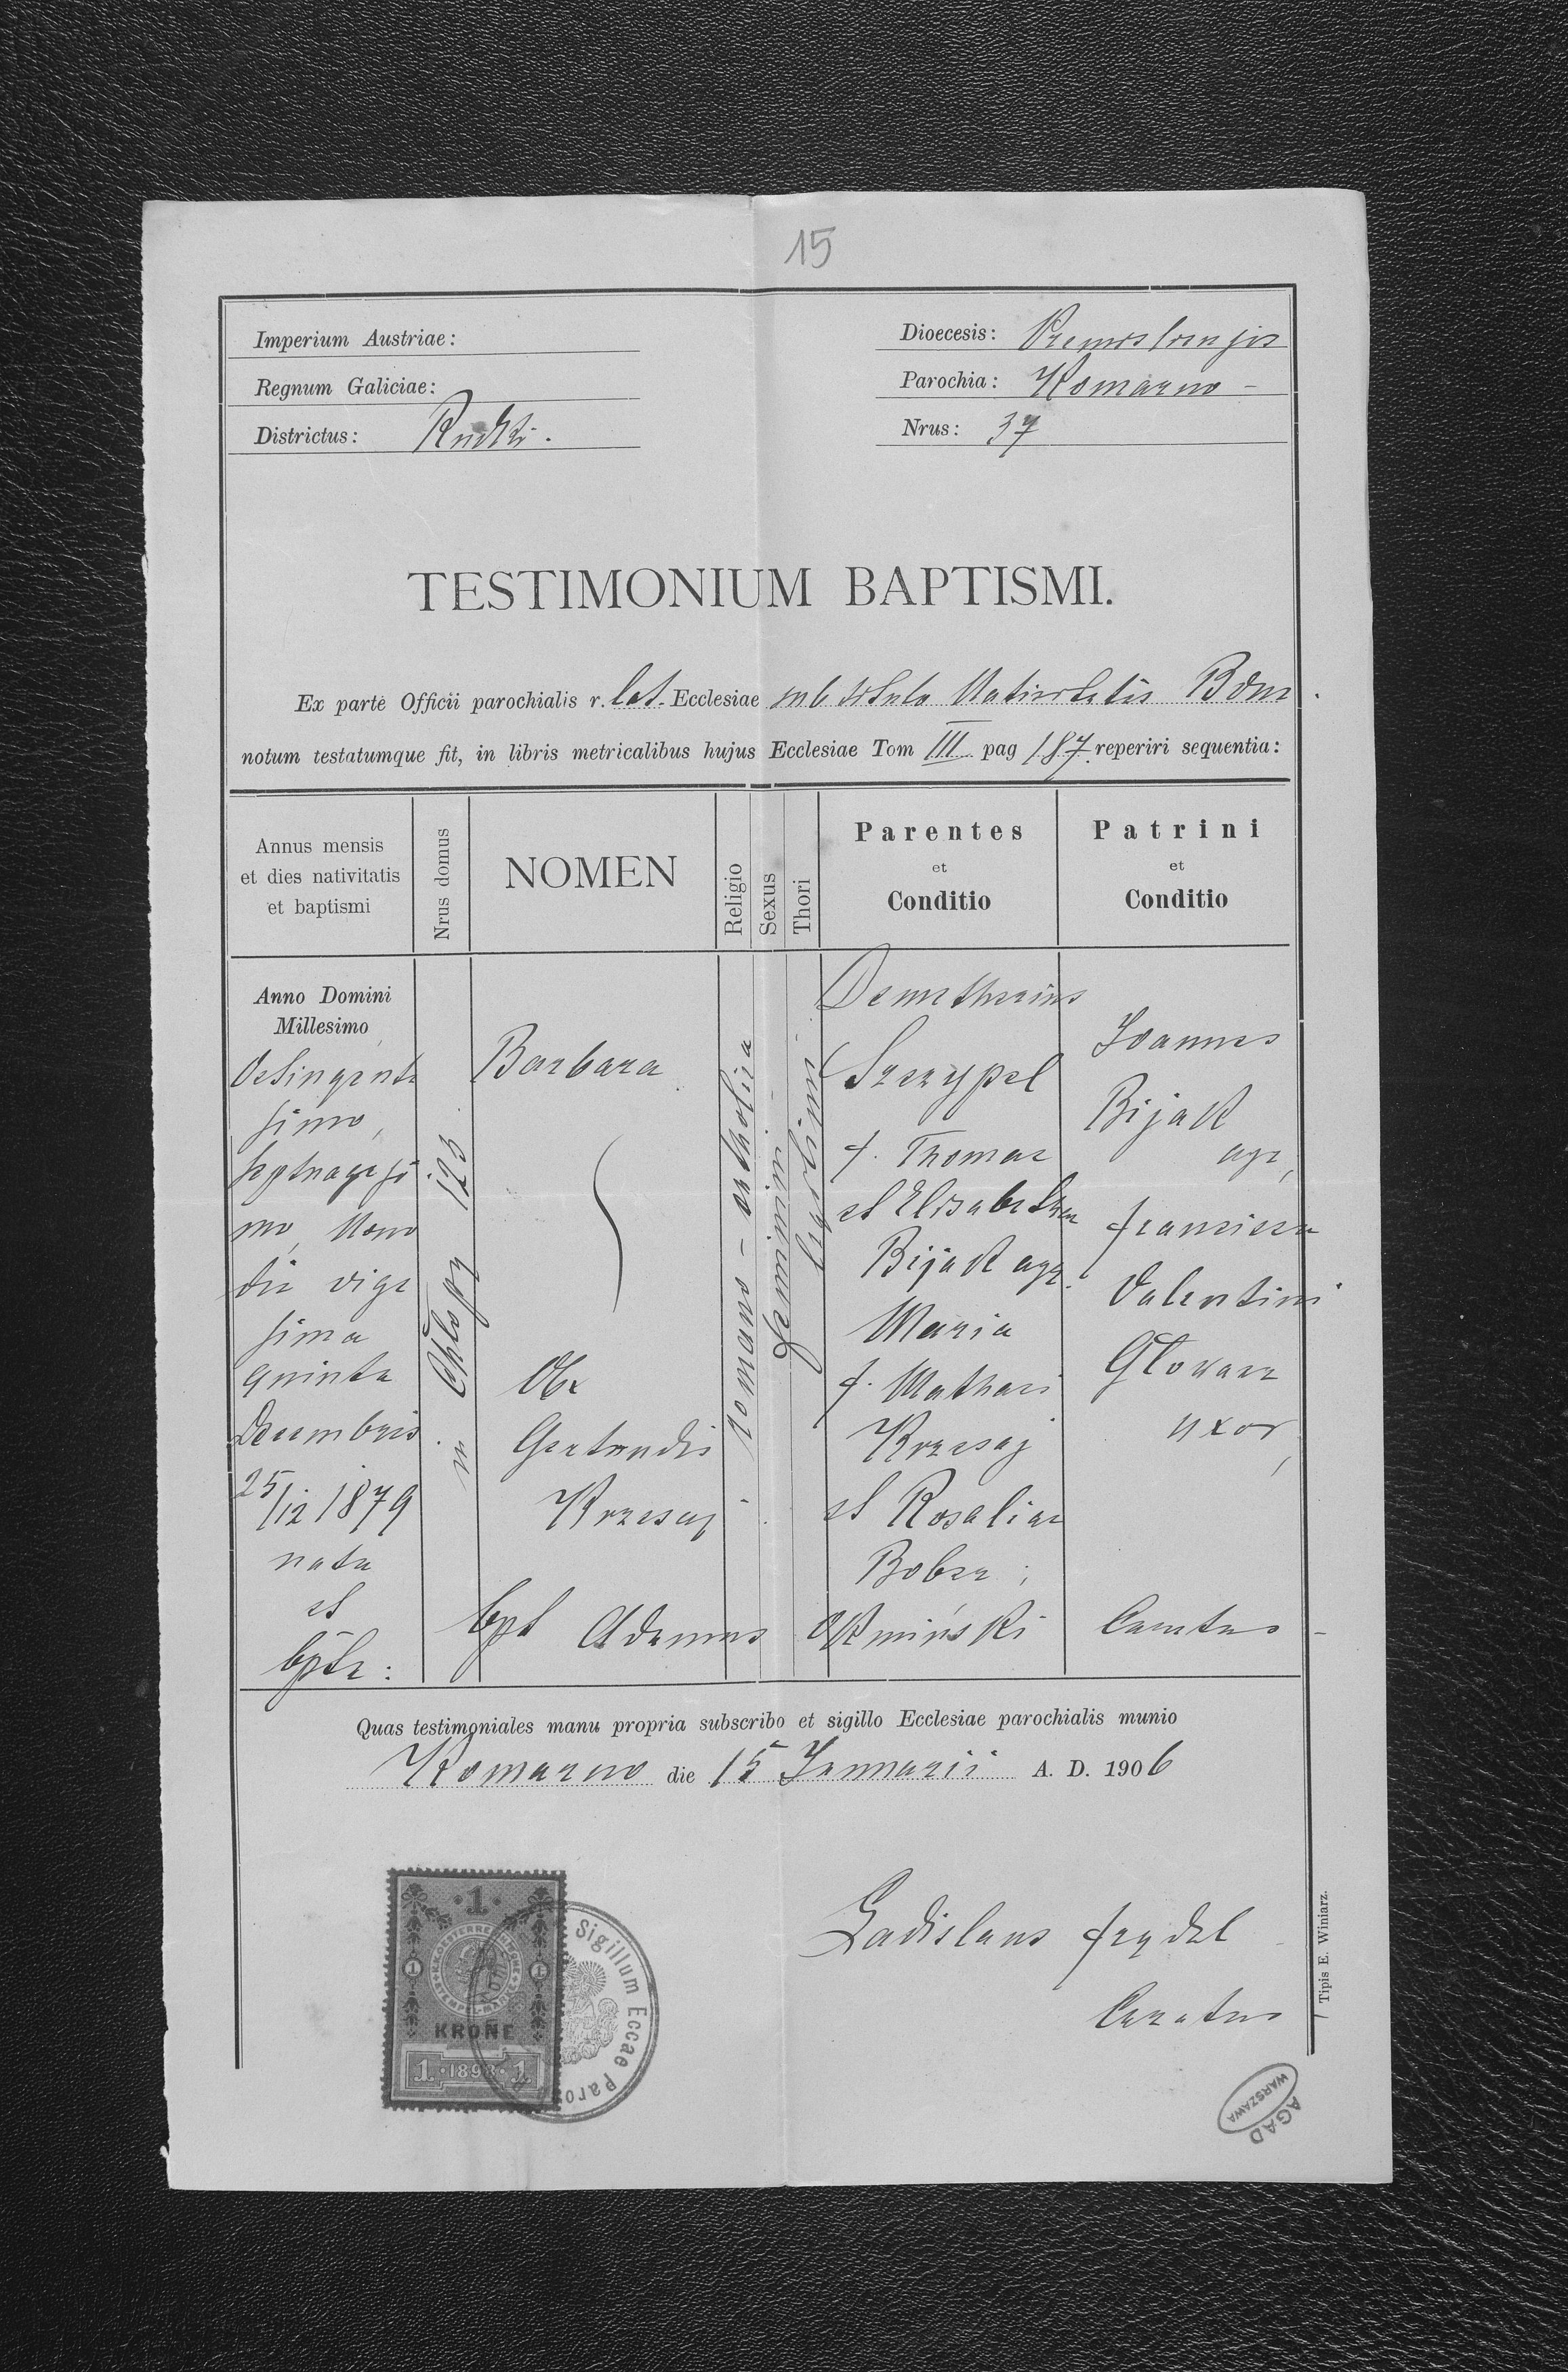 15
Imperium Austriae:
Regnum Galiciae:
Districtus: Rudki.
Dioecesis: Premisliensis
Parochia: Komarno -
Nrus: 37
TESTIMONIUM BAPTISMI.
Ex parte Officii parochialis r. lat. Ecclesiae sub titulo Nativitatis
notum testatumque fit, in libris metricalibus hujus Ecclesiae Tom III pag 187 reperiri sequentia:
Annus mensis
et dies nativitatis
et baptismi
Nrus domus
NOMEN
Religio
Sexus
Thori
Parentes
et
Conditio
Patrini
et
Conditio
Anno Domini
Millesimo
Octingente
simo,
septuagesi
mo, Nono
die vige
sima
quinta
Decembris
25/12 1879
nata
et
bpta:
in Chłopy 123
Barbara
Obx
Gertrudis
Krzesaj
romano - catholica
feminini
legitimi
Demetherius
Szczypel
f. Thomae
et Elisabethae
Bijak agr.
Maria
f. Mathaei
Krzesaj
et Rosaliae
Bober;
Joannes
Bijak
agr,
Francisca
Valentini
Głowacz
uxor,
bpt Adamus Okmiński Curatus -
Quas testimoniales manu propria subscribo et sigillo Ecclesiae parochialis munio
Komarno die 15 Januarii A. D. 1906
Ladislaus Frydel
Curatus
1
KRONE
1 · 1898 · 1
Sigillum Eccae Paro
Tipis E. Winiarz.
AGAD
WARSZAWA